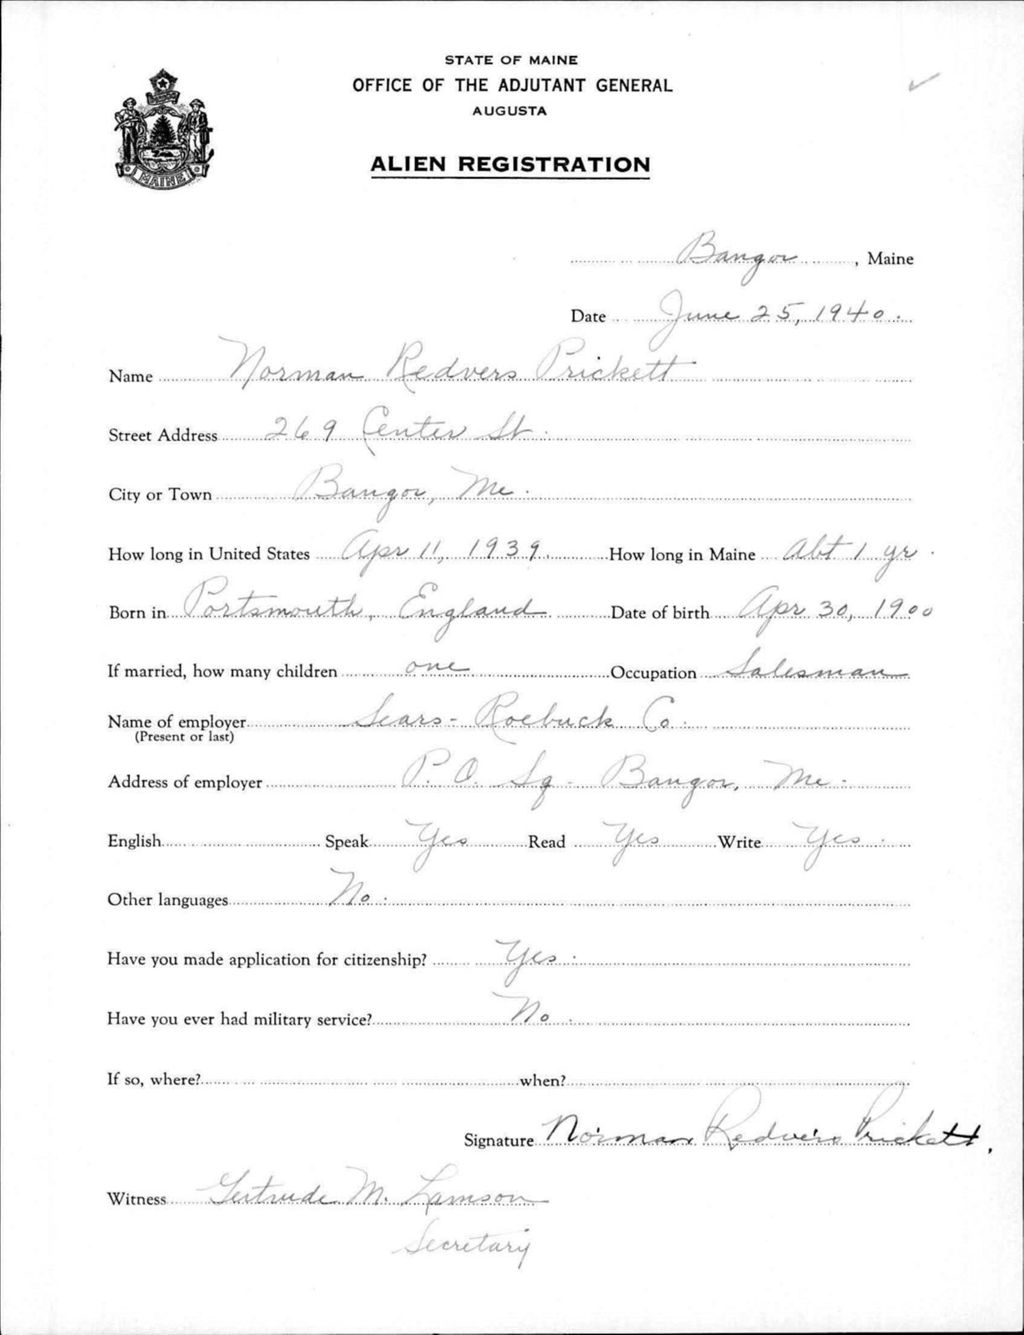 STATE OF MAINE
OFFICE OF THE ADJUTANT GENERAL
AUGUSTA
MAINE
ALIEN REGISTRATION
Bangor, Maine
Date June 25, 1940.
Name Norman Redvers Prickett
Street Address 269 Center St.
City or Town Bangor, Me.
How long in United States Apr 11, 1939. How long in Maine Abt 1 yr.
Born in Portsmouth, England Date of birth Apr 30, 1900
If married, how many children one Occupation Salesman
Name of employer Sears-Roebuck Co.
(Present or last)
Address of employer P.O. Sq - Bangor, Me.
English Speak Yes Read Yes Write Yes.
Other languages No.
Have you made application for citizenship? Yes.
Have you ever had military service? No.
If so, where? when?
Signature Norman Redvers Prickett.
Witness Gertrude M. Lamson
Secretary